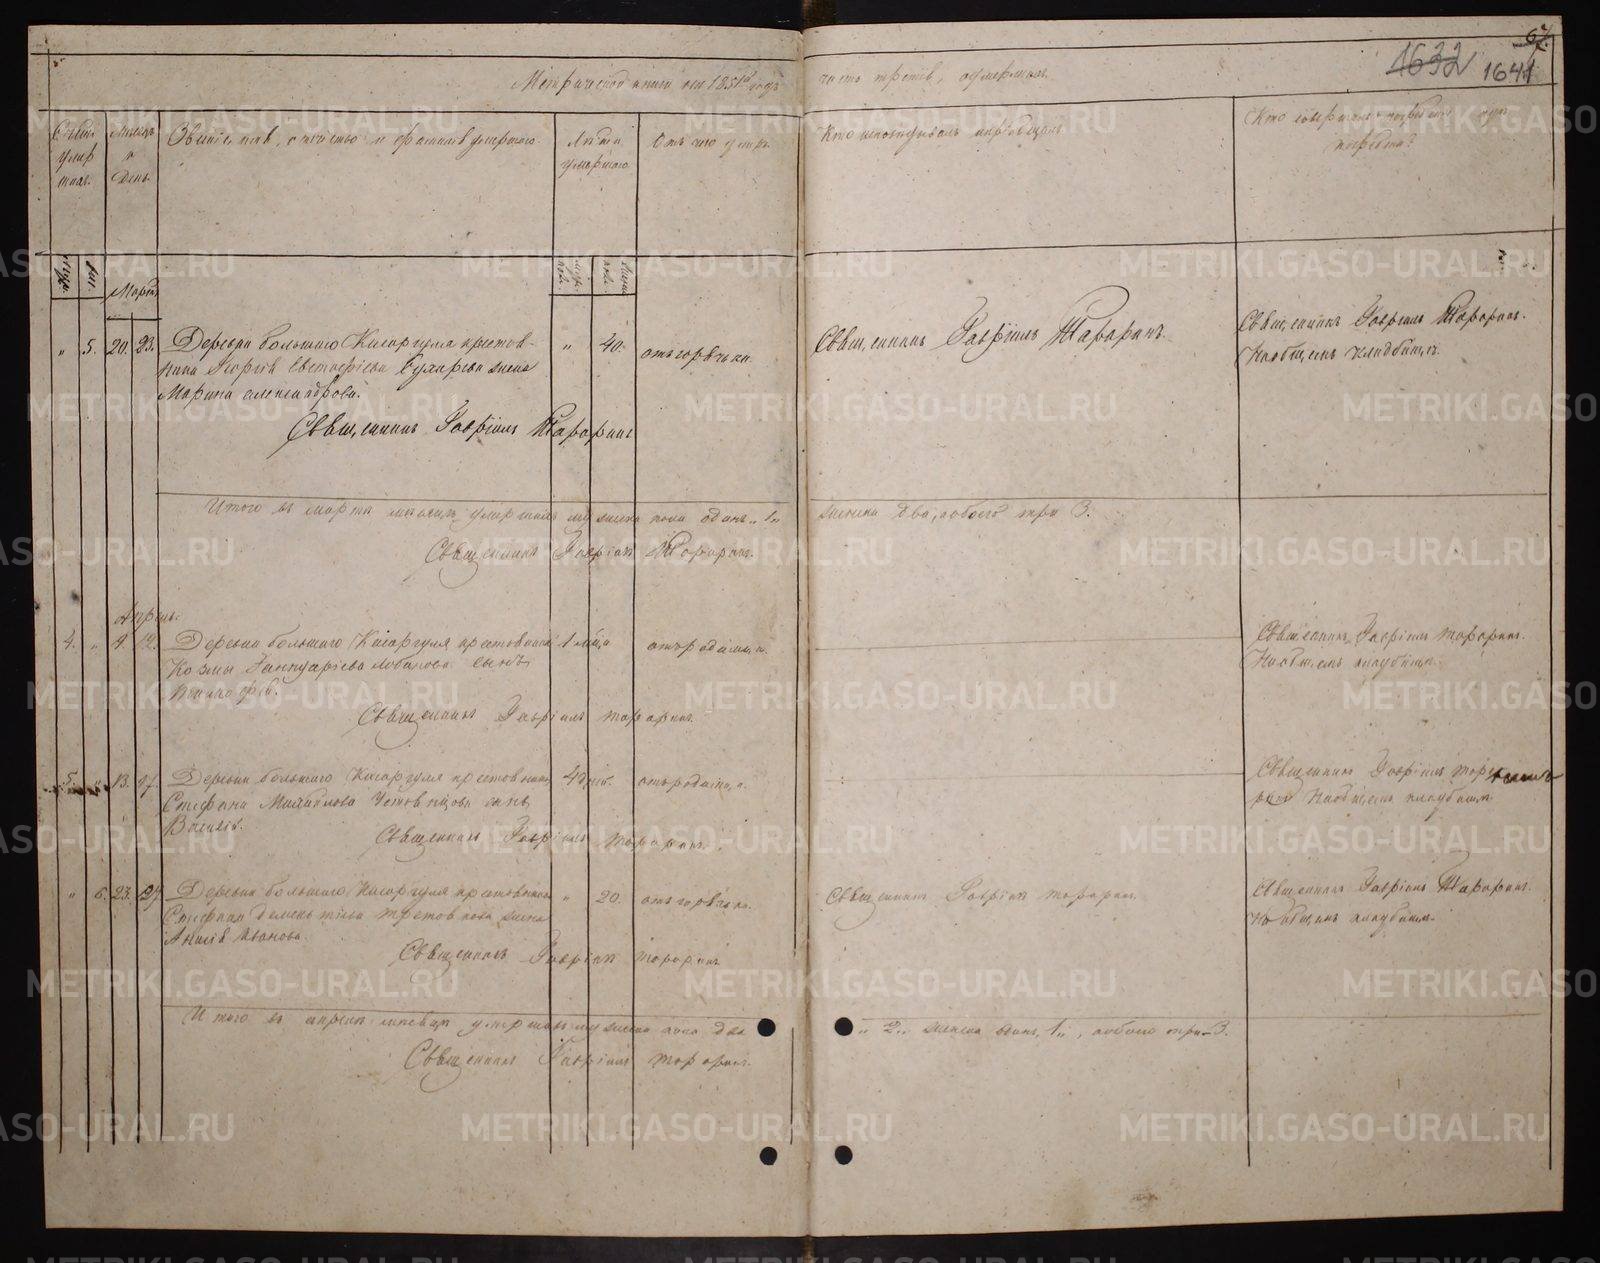 67.
1632 1641
Метрической книги на 1851й годъ часть третія, о умершихъ.
Счетъ умер шихъ.
Мѣсяцъ и День.
Званіе, имя, отчество и фамилія умершаго.
Лѣта умершаго.
Отъ чего умеръ.
Кто исповѣдывалъ и пріобщалъ.
Кто совершалъ погребеніе и гдѣ погребены?
муж. жен.
Мартъ
муж. пола. женс. пола.
" 5. 20. 23. Деревни большаго Кисаргуля крестья-
нина Георгія Евстафіева жена
Марина Александрова.
" 40. отъ горячки.
Священникъ Гавріилъ Тараринъ.
Священникъ Гавріилъ Тараринъ.
На общемъ кладбищѣ.
Священникъ Гавріилъ Тараринъ
Итого въ мартѣ мѣсяцѣ умершихъ мужеска пола одинъ "1" женска два, обоего три 3.
Священникъ Гавріилъ Тараринъ.
Апрѣль.
4. " 9. 12. Деревни большаго Кисаргуля крестьянина
Козмы Іаннуаріева Лобанова сынъ
1 мѣсяца отъ родимца.
Священникъ Гавріилъ Тараринъ.
На общемъ кладбищѣ.
Священникъ Гавріилъ Тараринъ.
5. " 13. 17. Деревни большаго Кисаргуля крестьянина
Стефана Михайлова сынъ
Василій.
отъ родимца.
Священникъ Гавріилъ
На общемъ кладбищѣ.
Священникъ Гавріилъ Тараринъ.
" 6. 23. 27. Деревни большаго Кисаргуля крестьянина
Стефана Дементіева жена
Анисія Иванова.
" 20. отъ горячки.
Священникъ Гавріилъ Тараринъ.
Священникъ Гавріилъ Тараринъ.
на общемъ кладбищѣ.
Священникъ Гавріилъ Тараринъ
Итого въ апрѣлѣ мѣсяцѣ умершихъ мужеска пола два "2" женска одинъ, 1", обоего три 3.
Священникъ Гавріилъ Тараринъ.
METRIKI.GASO-URAL.RU